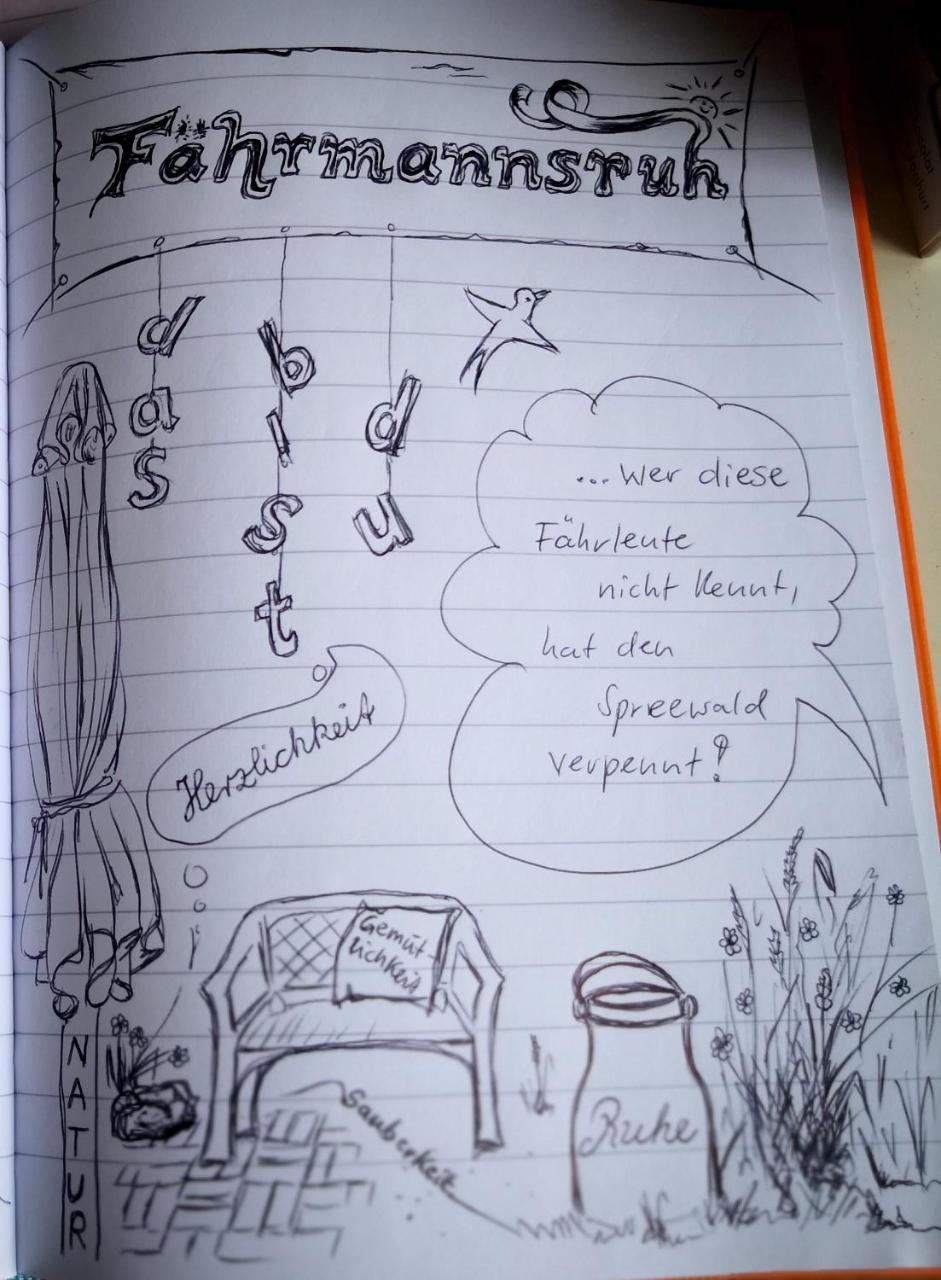 Fährmannsruh
das
bist
du
...wer diese
Fährleute
nicht kennt,
hat den
Spreewald
verpennt!
Herzlichkeit
Gemüt-
lichkeit
Sauberkeit
Ruhe
NATUR